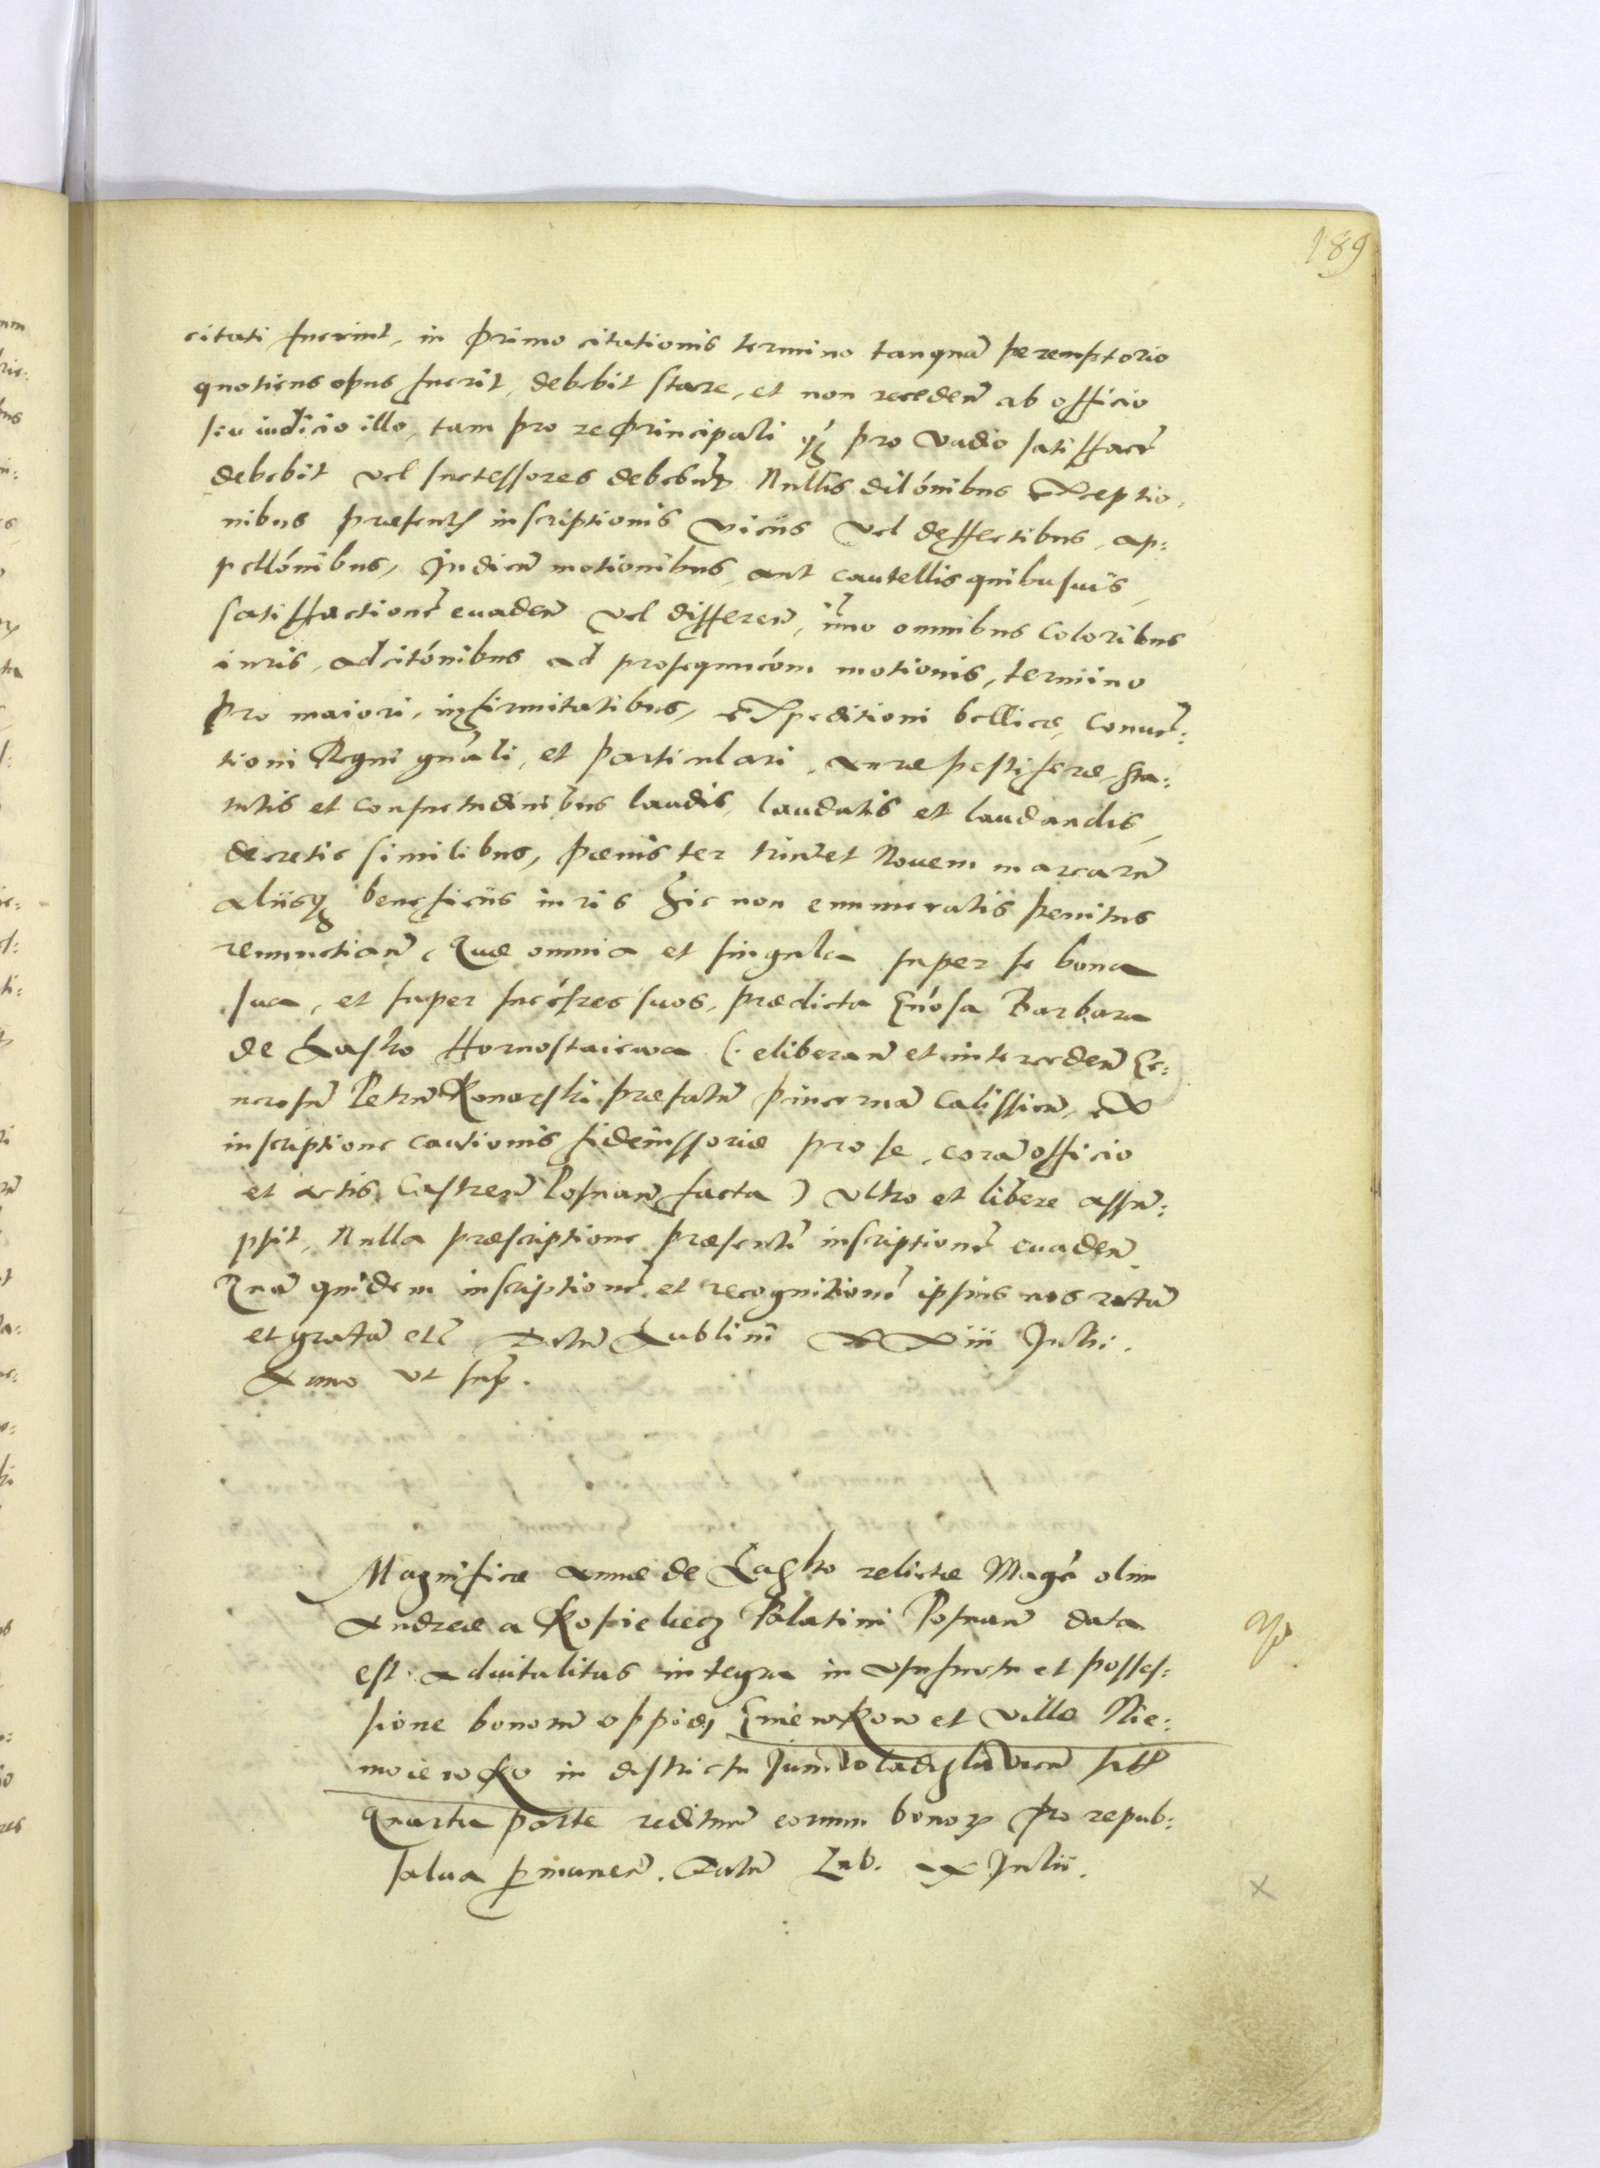 189
citati fuerint, in primo citationis termino tanquã peremptorio
quotiens opus fuerit, debebit stare, et non recedeñ ab officio
seu iudicio illo, tam pro re principali q̃ pro vadio satisfacẽ
debebit vel successores debebunt Nullis dilónibus exceptio,
nibus præsentis inscriptionis viciis vel deffectibus, ap:
pellónibus, Iudicũ motionibus, aut cautellis quibusuis,
satisfactionẽ euadeñ vel differeñ, im̃o omnibus coloribus
iuris, ad citónibus ad prosequucóm motionis, termino
pro maiori, infirmitatibus, expeditioni bellicæ, Conuẽ:
tioni Regni gñali, et particulari, auræ pestiferæ, sta:
tutis et consuetudinibus laudis, laudatis et laudandis,
decretis similibus, pœnis ter triũ et Nouem marcarũ
aliisq; beneficiis iuris hic non enumeratis penitus
renunctiañ, Quæ omnia et singula super se bona
sua, et super succ̃sres suos, prædicta Gñosa Barbara
de Lasko Hornostaiewa (: eliberañ et intercedeñ Ge:
nerosũ Petrũ Konarski præfatũ pincernã Calissieñ, ex
inscriptione cautionis fideiussoriæ pro se, corã officio
et actis Castreñ Posnañ facta) vltro et libere assũ:
psit, Nulla præscriptione præsentẽ inscriptionẽ euadeñ.
Quã quidem inscriptionẽ et recognitionẽ ipsius nos ratã
et gratã etc̃ Datũ Lublini XXiii Julii.
Anno vt sup̃.
Magnificæ Annæ de Lasko relictæ Magc̃i olim
Andreæ a Koscielecz Palatini Posnañ data
est aduitalitas integra in vsufructu et posses:
sione bonorũ oppidi Gniewkow et villæ Nie:
moiewko in districtu Juniwladislauieñ sitt
quarta parte redituũ eorum bonoꝝ pro repub:
salua p̱maneñ. Datũ Lub. xx Julii.
x